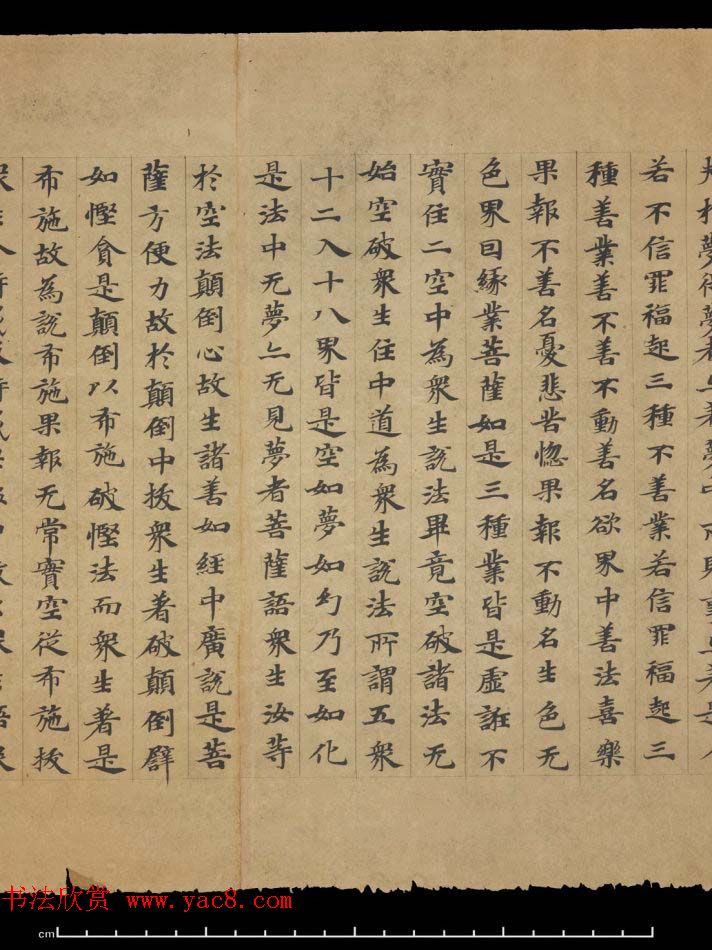 夢得夢者亦著夢中所見事亦著是人
若不信罪福起三種不善業若信罪福起三
種善業善不善不動善名欲界中善法喜樂
果報不善名憂悲苦惱果報不動名生色无
色界因緣業菩薩知是三種業皆是虛誑不
實住二空中為衆生說法畢竟空破諸法无
始空破衆生住中道為衆生說法所謂五衆
十二入十八界皆是空如夢如幻乃至如化
是法中无夢亦无見夢者菩薩語衆生汝等
於空法顛倒心故生諸著如經中廣說是菩
薩方便力故於顛倒中拔衆生著破顛倒譬
如慳貪是顛倒以布施破慳法而衆生著是
布施故為說布施果報无常實空從布施拔
书法欣赏 www.yac8.com
cm